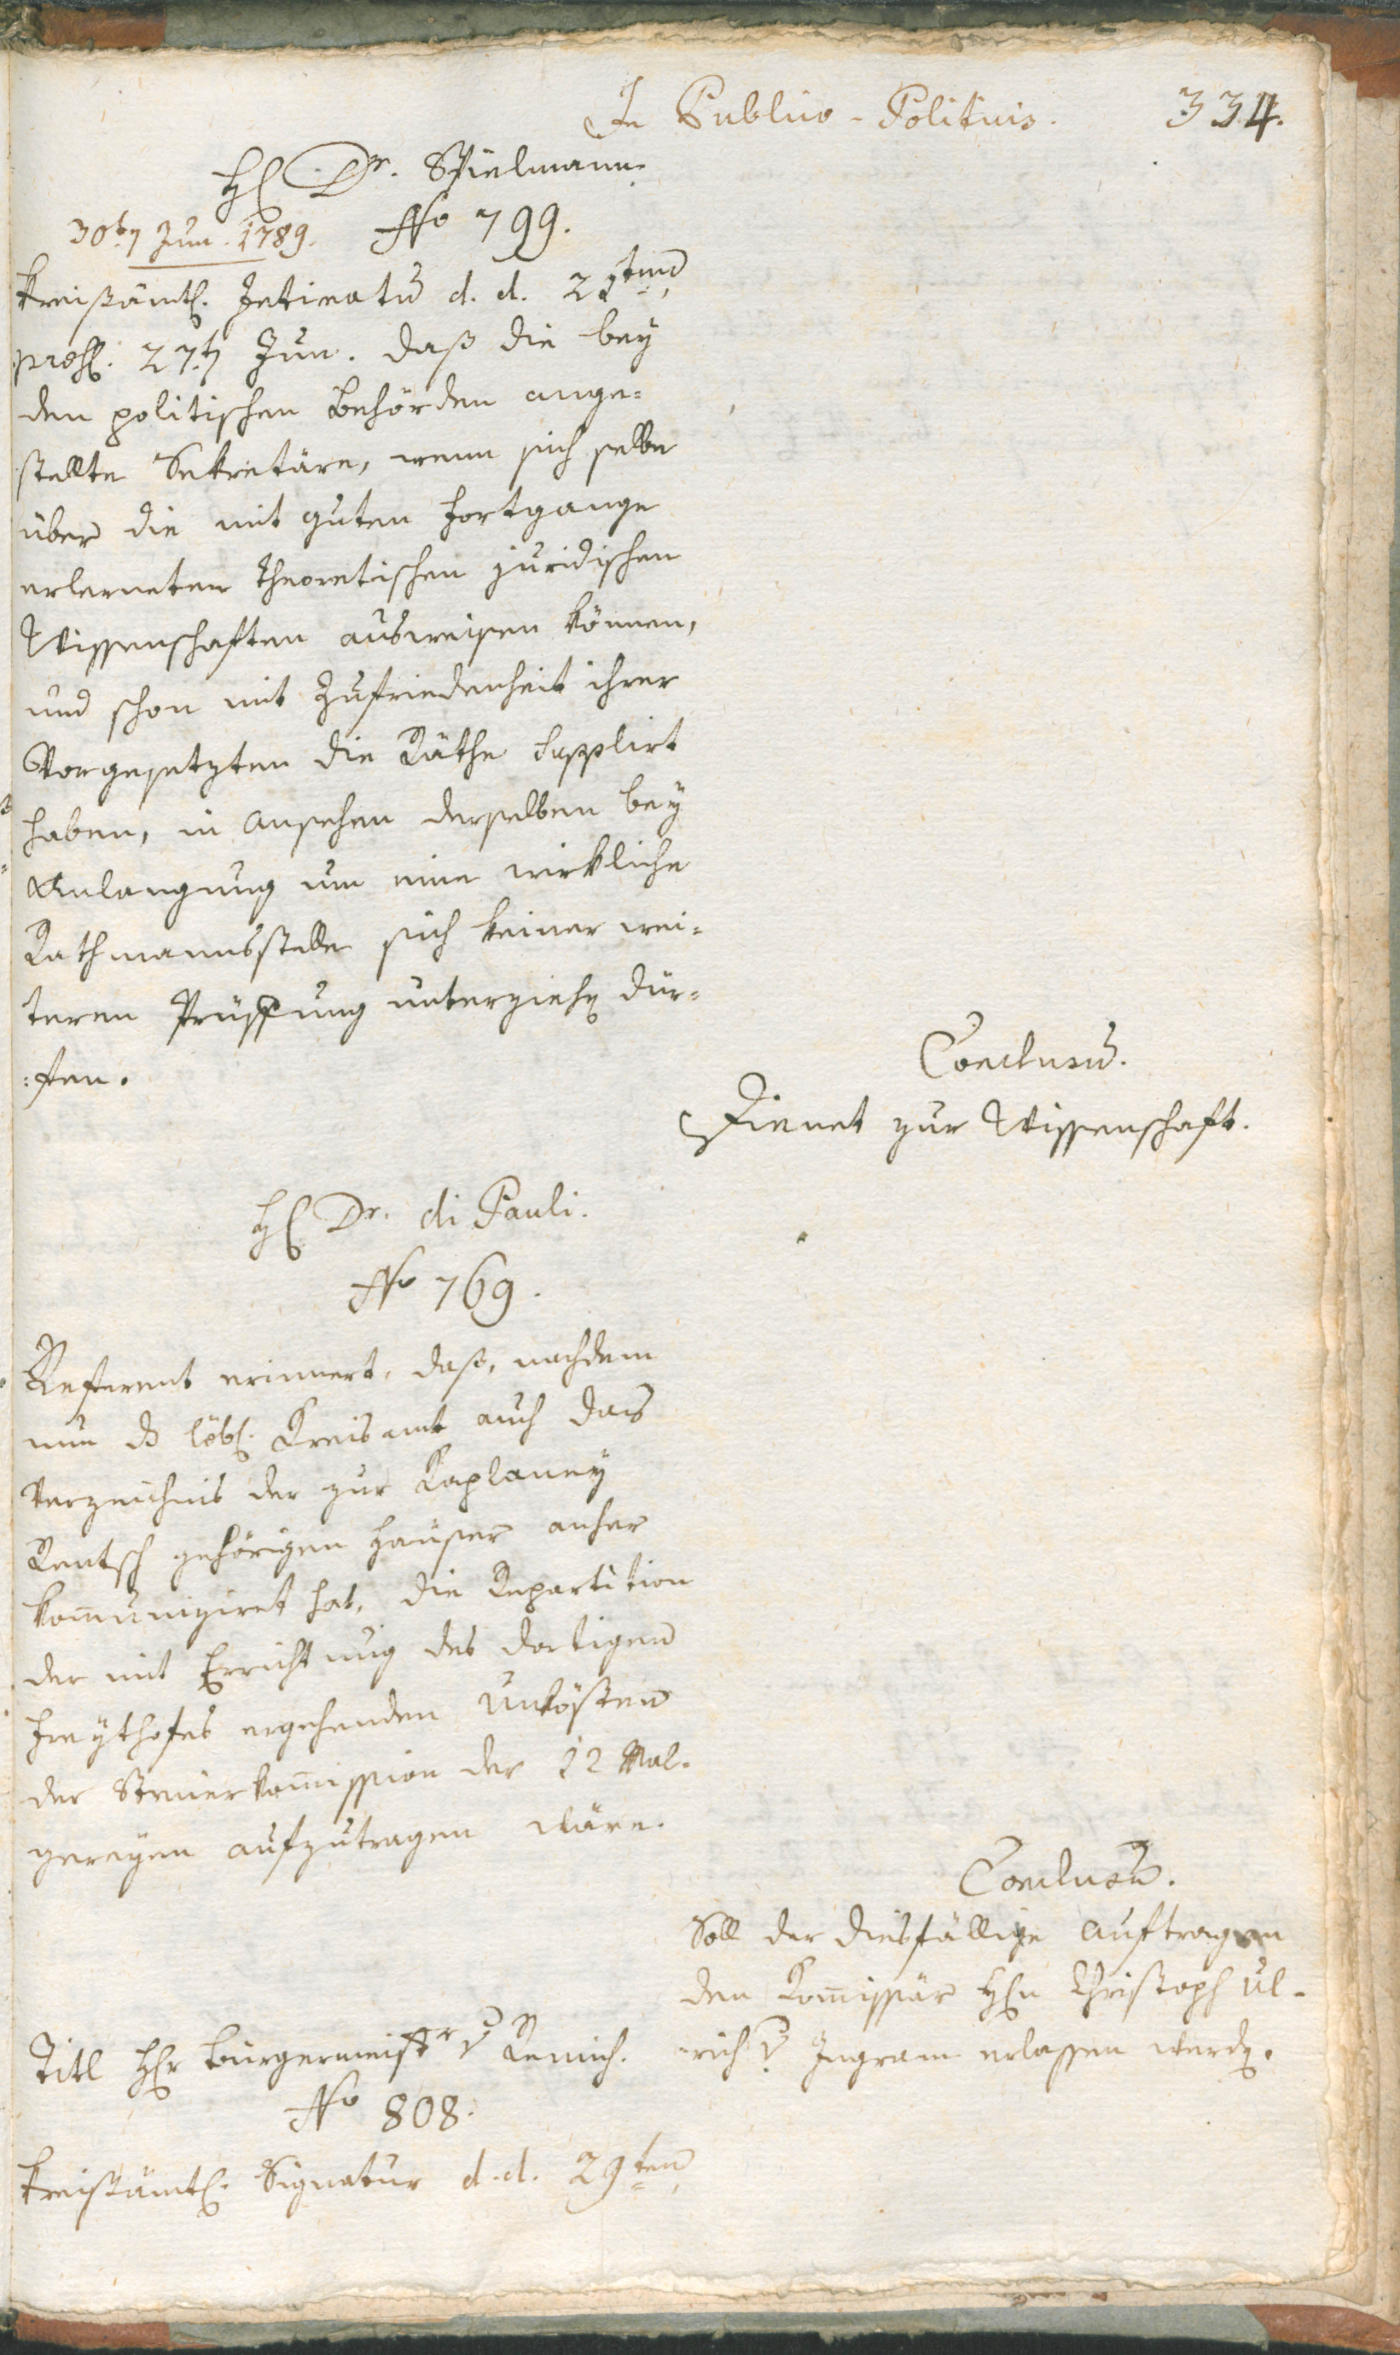 In Publico-Politicis.
334.
H Dr. Spielmann.
30t Jun. 1789. No 799.
Kreißämtl. Intimatum d. d. 21ten,
prs. 27t Jun. daß die bey
den politischen Behörden ange-
stellte Sekretäre, wenn sich selbe
über die mit guten Fortgange
erlerneten theoretischen juridischen
Wissenschaften ausweisen können,
und schon mit Zufriedenheit ihrer
Vorgesetzten die Räthe supplirt
haben, in Ansehen derselben bey
Anlangung um eine wirkliche
Rathmannsstelle sich keiner wei-
teren Prüffung unterziehen dür-
:ften.
Conclusum.
Dienet zur Wissenschaft.
H Dr. di Pauli.
No 769.
Referent erinnert, daß, nachdem
nun das löbl. Kreisamt auch das
Verzeichnis der zur Kaplaney
Rentsch gehörigen Häuser anher
kommuniziret hat, die Repartition
der mit Errichtung des dortigen
Freythofes ergehenden Unkösten
der Steuerkommission der 12 Mal-
gereyen aufzutragen wäre.
Conclusum.
Soll der diesfällige Auftrag an
den Kommissär Hn Christoph Ul-
rich v Ingram erlassen werden.
Titl Hr Bürgermeister v Remich.
No 808.
Kreißämtl. Signatur d. d. 29ten,